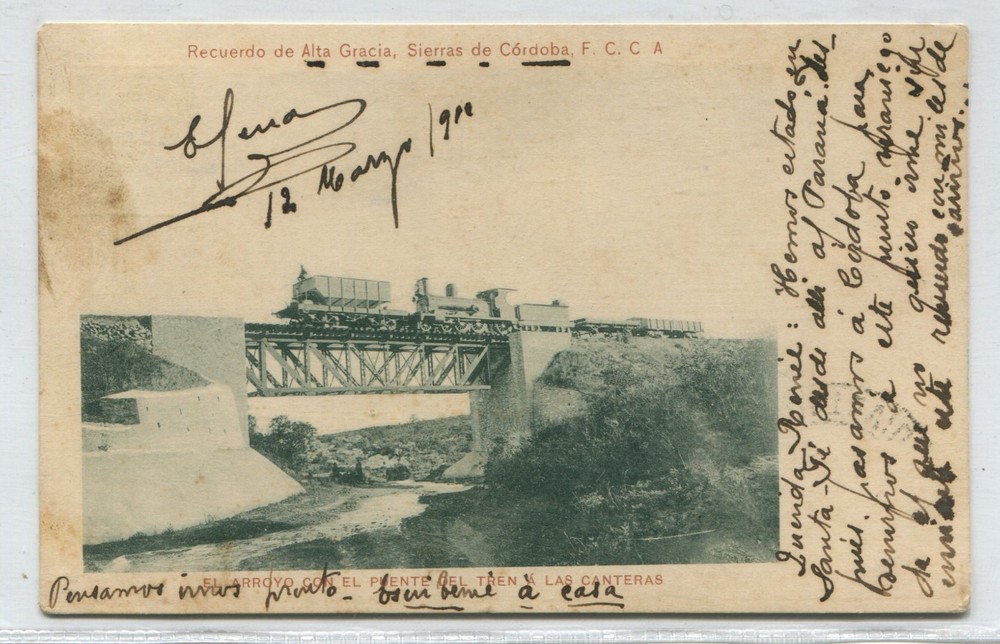 Recuerdo de Alta Gracia, Sierras de Córdoba, F. C. C A
Elena
12 Marzo/911
Querida René: Hemos estado en
Santa-Fé desde alli al Paraná des-
pués pasamos á Córdoba para
venirnos á este punto
de el que no quiero irme sin
enviar este recuerdo con miles de
cariños...
EL ARROYO CON EL PUENTE DEL TREN Á LAS CANTERAS
Pensamos irnos pronto - Escribeme à casa